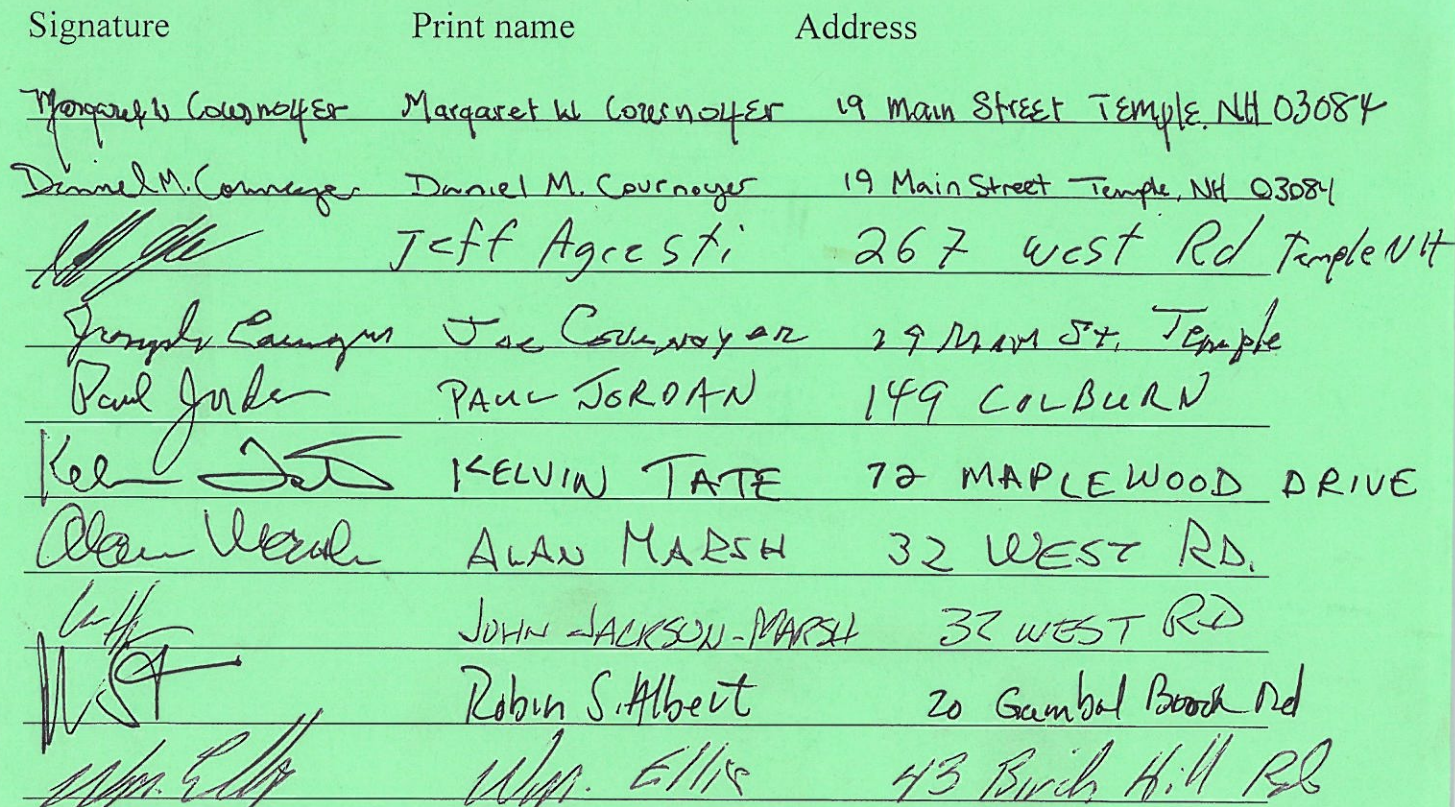 Signature Print name Address
Margaret W Cournoyer Margaret W Cournoyer 19 Main Street Temple, NH 03084
Daniel M. Cournoyer Daniel M. Cournoyer 19 Main Street Temple, NH 03084
Jeff Agresti 267 west Rd Temple NH
Joseph Cournoyer Joe Cournoyer 19 Main St. Temple
Paul Jordan PAUL JORDAN 149 COLBURN
Kelvin Tate KELVIN TATE 72 MAPLEWOOD DRIVE
Alan Marsh ALAN MARSH 32 WEST RD.
JOHN JACKSON-MARSH 32 WEST RD
Robin S. Albert 20 Gambol Rd
Wm. Ellis Wm. Ellis 43 Birch Hill Rd